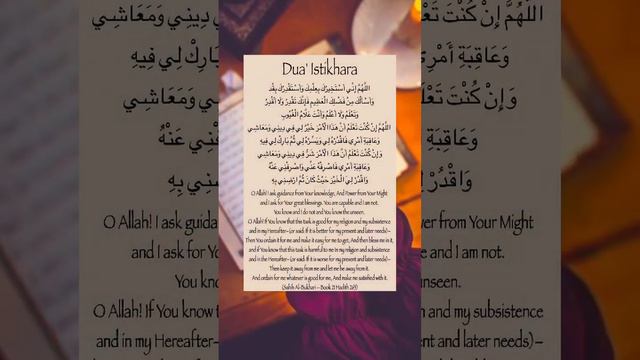 Dua' Istikhara
اللَّهُمَّ إِنِّي أَسْتَخِيرُكَ بِعِلْمِكَ وَأَسْتَقْدِرُكَ بِقُدْ
وَأَسْأَلُكَ مِنْ فَضْلِكَ الْعَظِيمِ فَإِنَّكَ تَقْدِرُ وَلَا أَقْدِرُ
وَتَعْلَمُ وَلَا أَعْلَمُ وَأَنْتَ عَلَّامُ الْغُيُوبِ
اللَّهُمَّ إِنْ كُنْتَ تَعْلَمُ أَنَّ هَذَا الْأَمْرَ خَيْرٌ لِي فِي دِينِي وَمَعَاشِي
وَعَاقِبَةِ أَمْرِي فَاقْدُرْهُ لِي وَيَسِّرْهُ لِي ثُمَّ بَارِكْ لِي فِيهِ
وَإِنْ كُنْتَ تَعْلَمُ أَنَّ هَذَا الْأَمْرَ شَرٌّ فِي دِينِي وَمَعَاشِي
وَعَاقِبَةِ أَمْرِي فَاصْرِفْهُ عَنِّي وَاصْرِفْنِي عَنْهُ
وَاقْدُرْ لِيَ الْخَيْرَ حَيْثُ كَانَ ثُمَّ ارْضِنِي بِهِ
O Allah! I ask guidance from Your knowledge, And Power from Your Might
and I ask for Your great blessings. You are capable and I am not.
You know and I do not and You know the unseen.
O Allah! If You know that this task is good for my religion and my subsistence
and in my Hereafter– (or said: If it is better for my present and later needs)–
Then You ordain it for me and make it easy for me to get, And then bless me in it,
and if You know that this task is harmful to me In my religion and subsistence
and in the Hereafter– (or said: If it is worse for my present and later needs)–
Then keep it away from me and let me be away from it.
And ordain for me whatever is good for me, And make me satisfied with it.
(Sahih Al-Bukhari – Book 21 Hadith 263)